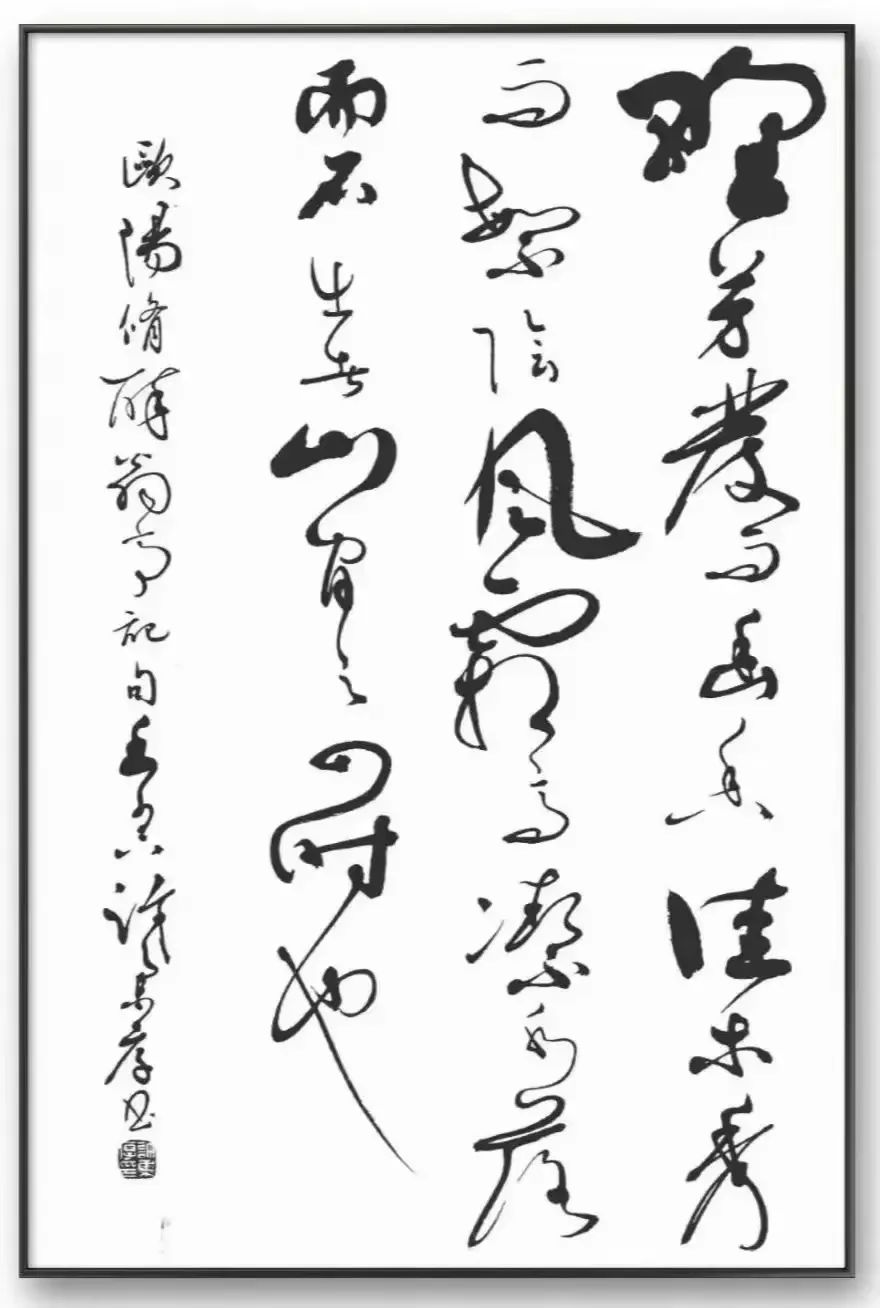 野芳發而幽香佳木秀
而繁陰風霜高潔水落
而石出者山間之四時也
歐陽脩醉翁亭記句書